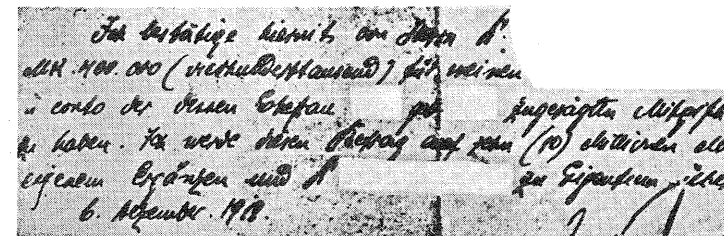 Ich bestätige hiermit von Herrn N.
MK. 400.000 (vierhunderttausend) für meinen
à conto der dessen Ehefrau geb. zugesagten Mitgift
zu haben. Ich werde diesen Betrag auf zehn (10) Millionen
eigenem Ergänzen und N zu Eigentum
6. Dezember. 1919.